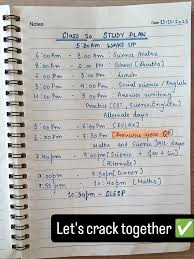 Notes
Date: 13:12:2025
Class 10 STUDY PLAN
5:30AM WAKE UP
6:00 Am - 8:00 Am - Science /Maths
8:00 Am - 2:00 PM - School (Doubts)
2:00 PM - 3:00 PM - Lunch
3:00 PM - 4:00 PM - Social science / English
4:00 PM - 5:00 PM - Answer writing
Practice (SST, Science, English)
Alternate days
5:00 PM - 6:00 PM - (RELAX)
6:00 PM - 7:30 PM - (Previous year QP)
Maths and Science Alt. days
7:40 PM - 9:00 PM - (Science + Geo +
- (Alternate)
9:00 PM - 9:30 PM - (Dinner)
9:35 PM - 10:30 PM - (Maths)
10:30 PM - SLEEP
Let's crack together ✅